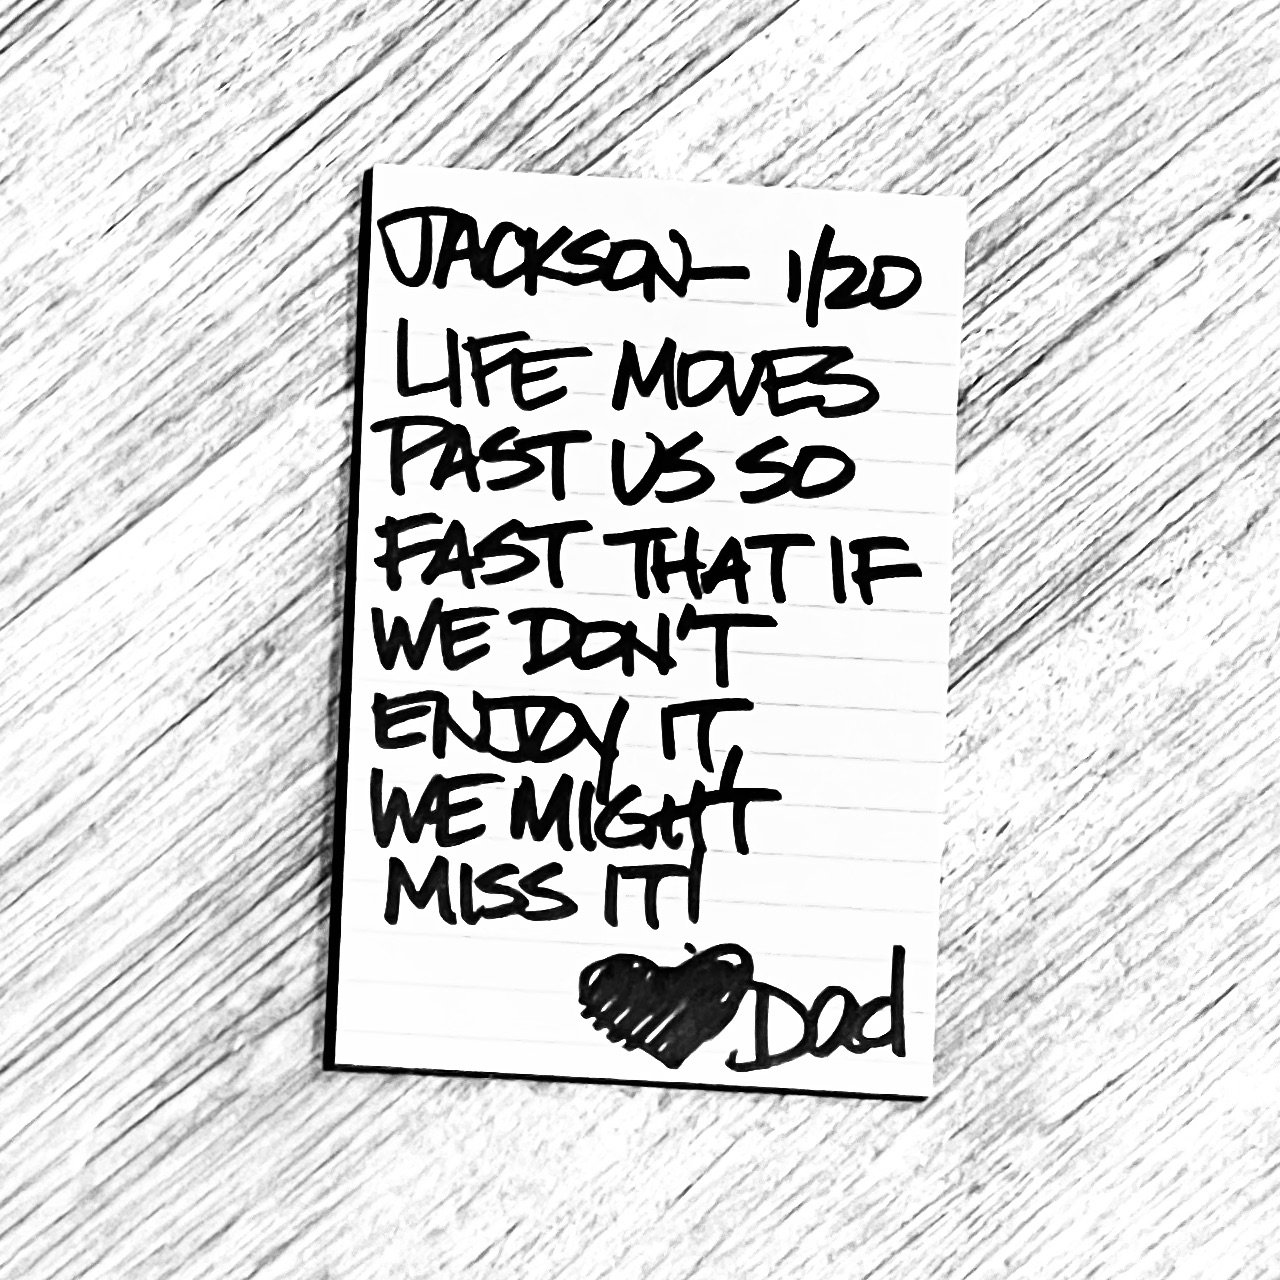 JACKSON— 1/20
LIFE MOVES
PAST US SO
FAST THAT IF
WE DON'T
ENJOY IT,
WE MIGHT
MISS IT!
♥ Dad